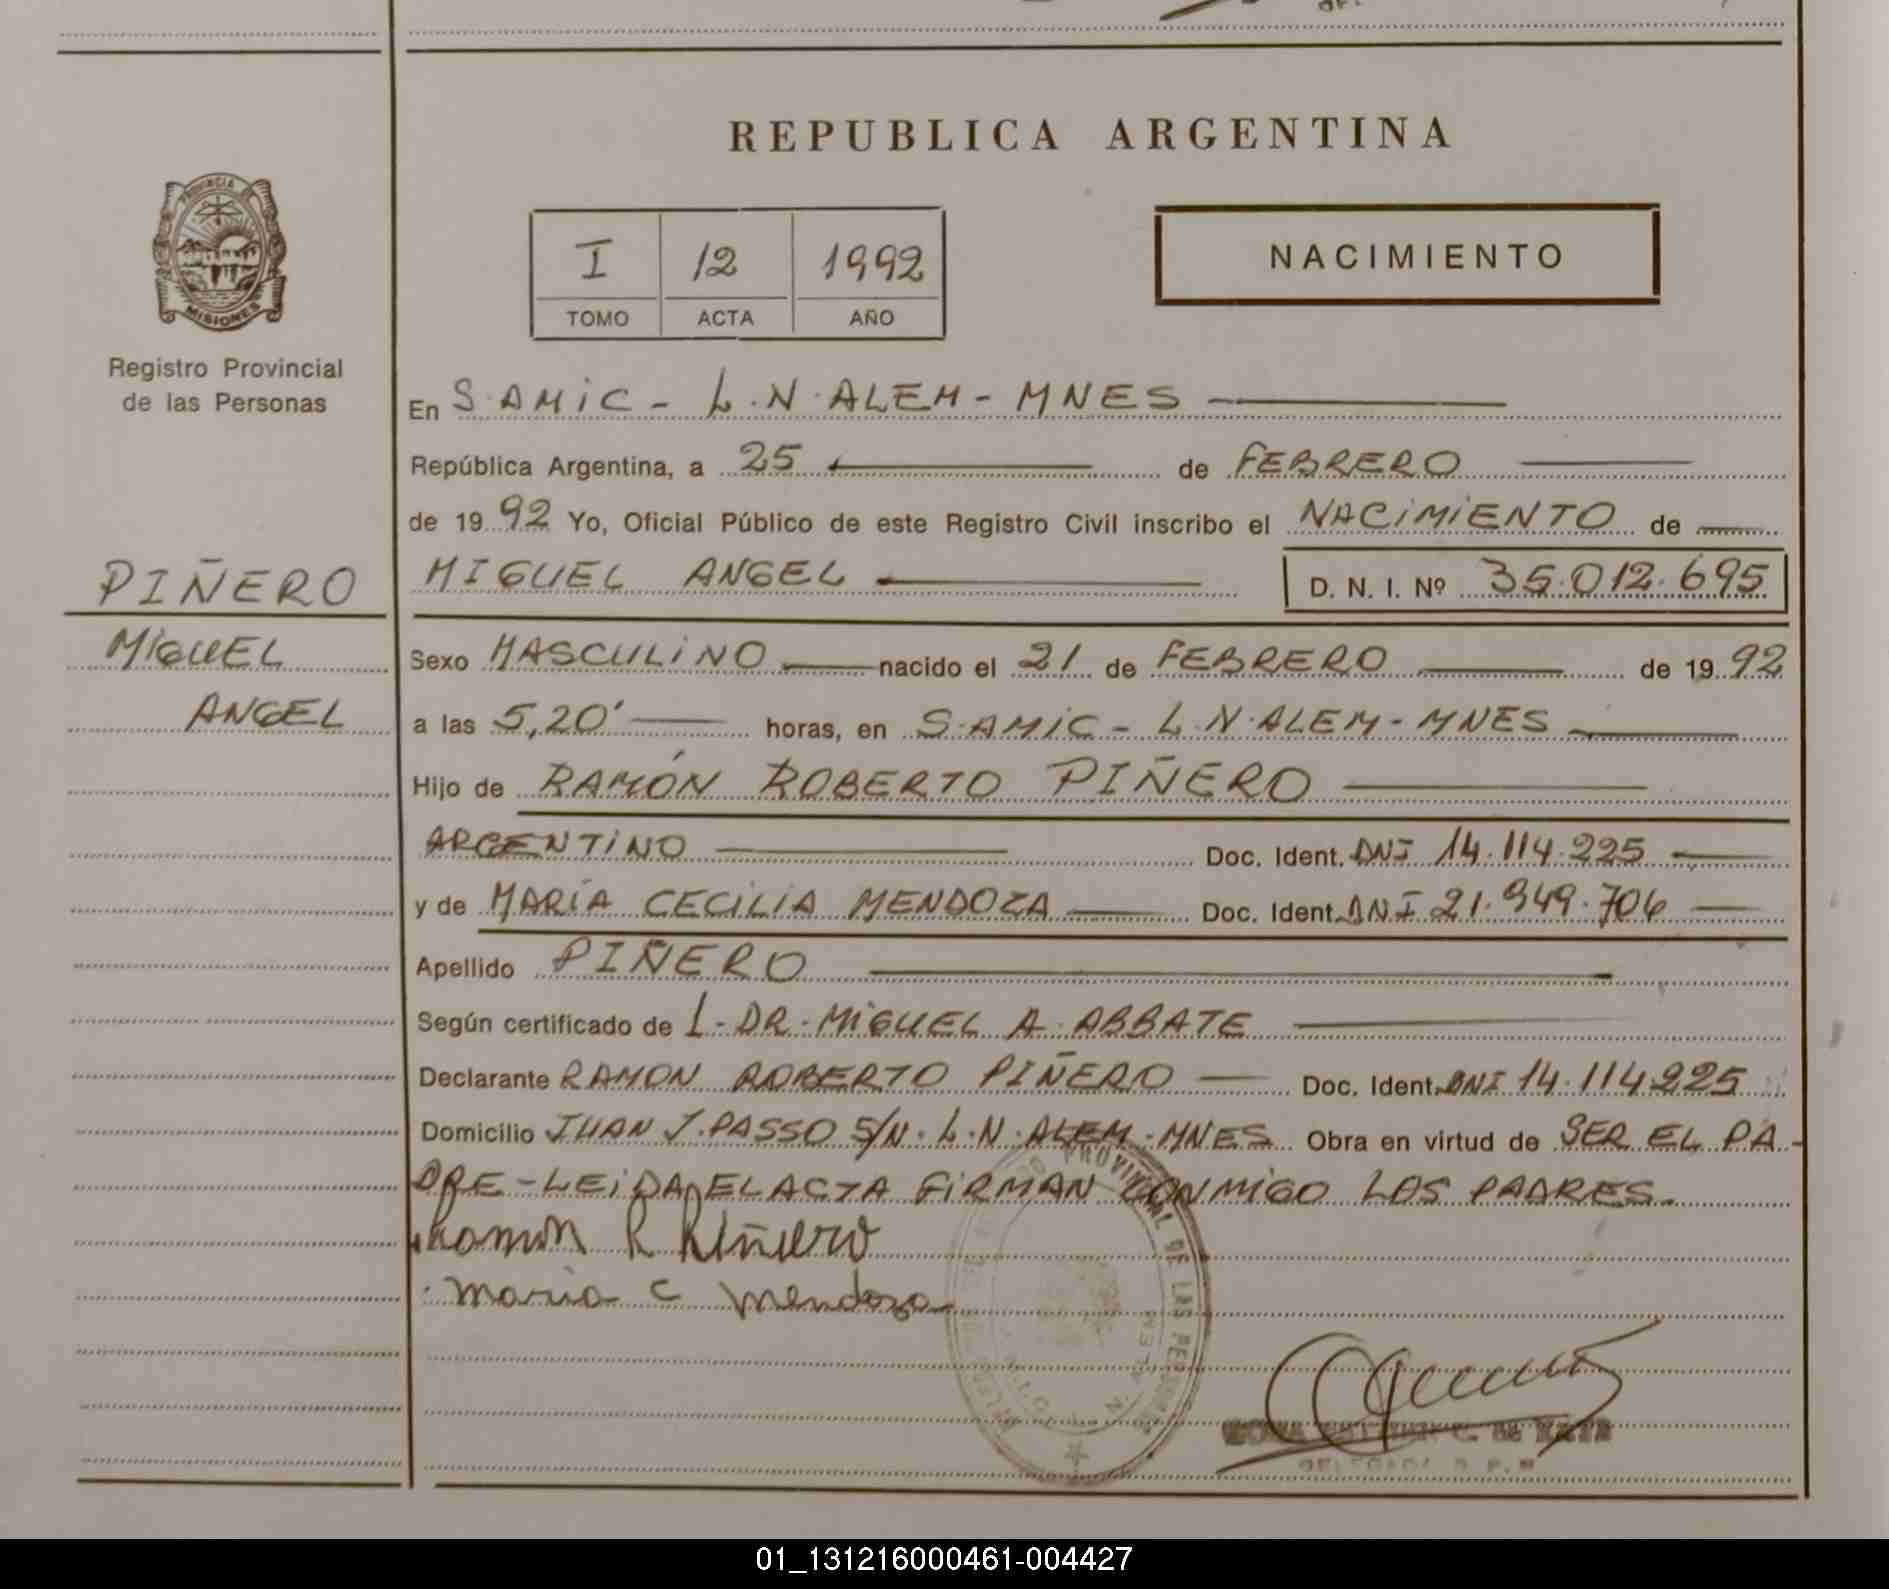 REPUBLICA ARGENTINA
PROVINCIA
MISIONES
Registro Provincial
de las Personas
I 12 1992
TOMO ACTA AÑO
NACIMIENTO
En S.AMIC - L.N.ALEM - MNES
República Argentina, a 25 de FEBRERO
de 1992 Yo, Oficial Público de este Registro Civil inscribo el NACIMIENTO de
PIÑERO
MIGUEL
ANGEL
MIGUEL ANGEL D. N. I. Nº 35.012.695
Sexo MASCULINO nacido el 21 de FEBRERO de 1992
a las 5,20' horas, en S.AMIC - L.N.ALEM - MNES
Hijo de RAMÓN ROBERTO PIÑERO
ARGENTINO Doc. Ident. DNI 14.114.225
y de MARÍA CECILIA MENDOZA Doc. Ident. DNI 21.949.706
Apellido PIÑERO
Según certificado de L-DR.MIGUEL A.ABBATE
Declarante RAMON ROBERTO PIÑERO Doc. Ident. DNI 14.114.225
Domicilio JUAN J.PASSO S/N.L.N.ALEM-MNES Obra en virtud de SER EL PA-
DRE-LEIDA EL ACTA FIRMAN CONMIGO LOS PADRES.
Ramon R Piñero
Maria C Mendoza
PROVINCIAL DE LAS PERSONAS
N. ALEM
01_131216000461-004427